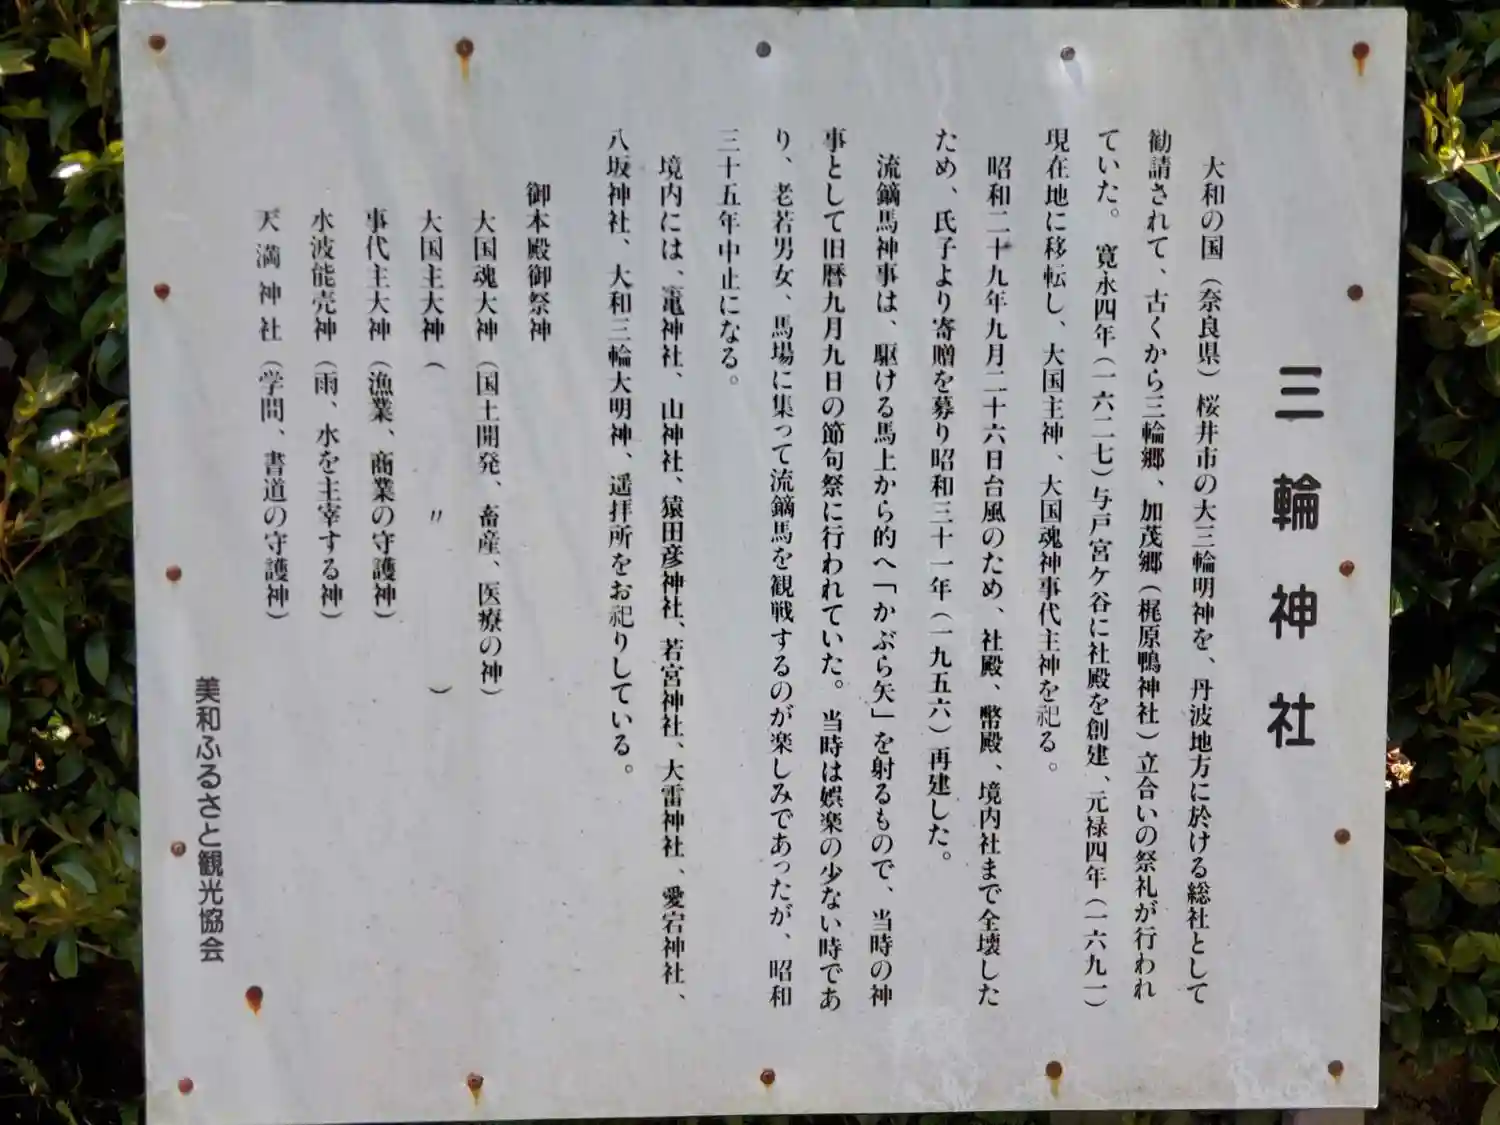 三輪神社
大和の国（奈良県）桜井市の大三輪明神を、丹波地方に於ける総社として
勧請されて、古くから三輪郷、加茂郷（梶原鴨神社）立合いの祭礼が行われ
ていた。寛永四年（一六二七）与戸宮ケ谷に社殿を創建、元禄四年（一六九一）
現在地に移転し、大国主神、大国魂神事代主神を祀る。
昭和二十九年九月二十六日台風のため、社殿、幣殿、境内社まで全壊した
ため、氏子より寄贈を募り昭和三十一年（一九五六）再建した。
流鏑馬神事は、駆ける馬上から的へ「かぶら矢」を射るもので、当時の神
事として旧暦九月九日の節句祭に行われていた。当時は娯楽の少ない時であ
り、老若男女、馬場に集って流鏑馬を観戦するのが楽しみであったが、昭和
三十五年中止になる。
境内には、竃神社、山神社、猿田彦神社、若宮神社、大雷神社、愛宕神社、
八坂神社、大和三輪大明神、遥拝所をお祀りしている。
御本殿御祭神
大国魂大神（国土開発、畜産、医療の神）
大国主大神（〃）
事代主大神（漁業、商業の守護神）
水波能売神（雨、水を主宰する神）
天満神社（学問、書道の守護神）
美和ふるさと観光協会